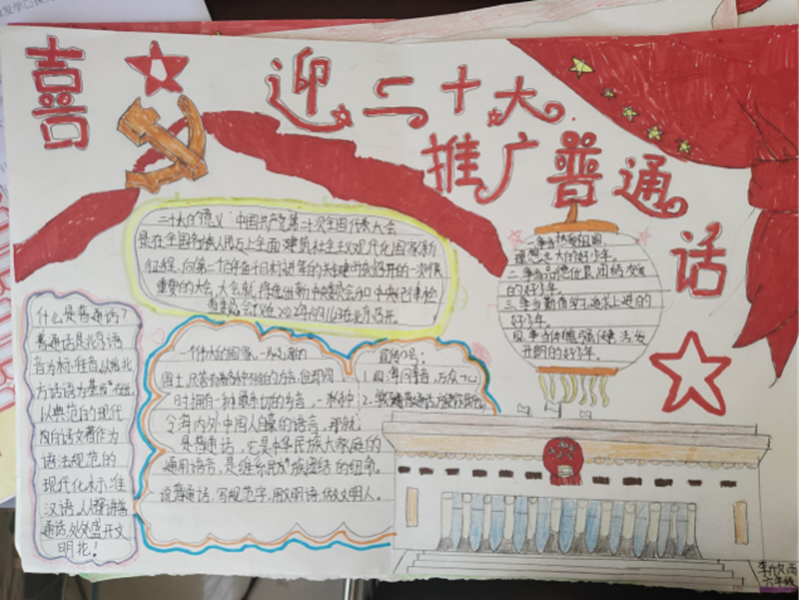 喜迎二十大
推广普通话
二十大的意义:中国共产党第二十次全国代表大会
是在全国各族人民迈上全面建筑社主义现代化国家新
征程,向第二个百年奋斗目标进军的关键时刻召开的一次很
重要的大会,大会就
2022年 北京召开。
一争当热爱祖国
理想远大的好少年。
二争当品德优良团结友爱
的好少年。
三争当勤奋学习追求上进的
好少年。
四争当体魄强健活发
开朗的好少年。
什么是普通话?
普通话是北京语
音为标准音以北
方话语为基
以典范的现代
白话文著作为
语法规范的
现代化标准
汉语,人人讲普
通话,处处盛开文
明花!
一个伟大的国家,一
国土,尽管有着各种不同的方言,但却同
时拥有一种最亲切的乡音,一种
令海内外中国人自豪的语言,那就
是普通话,它是中华民族大家庭的
通用语言,是维系民族团结的纽带。
说普通话,写规范字,用文明语,做文明人。
宣传口号:
1.四海同音,万众一心
2.
李欣雨
六年级